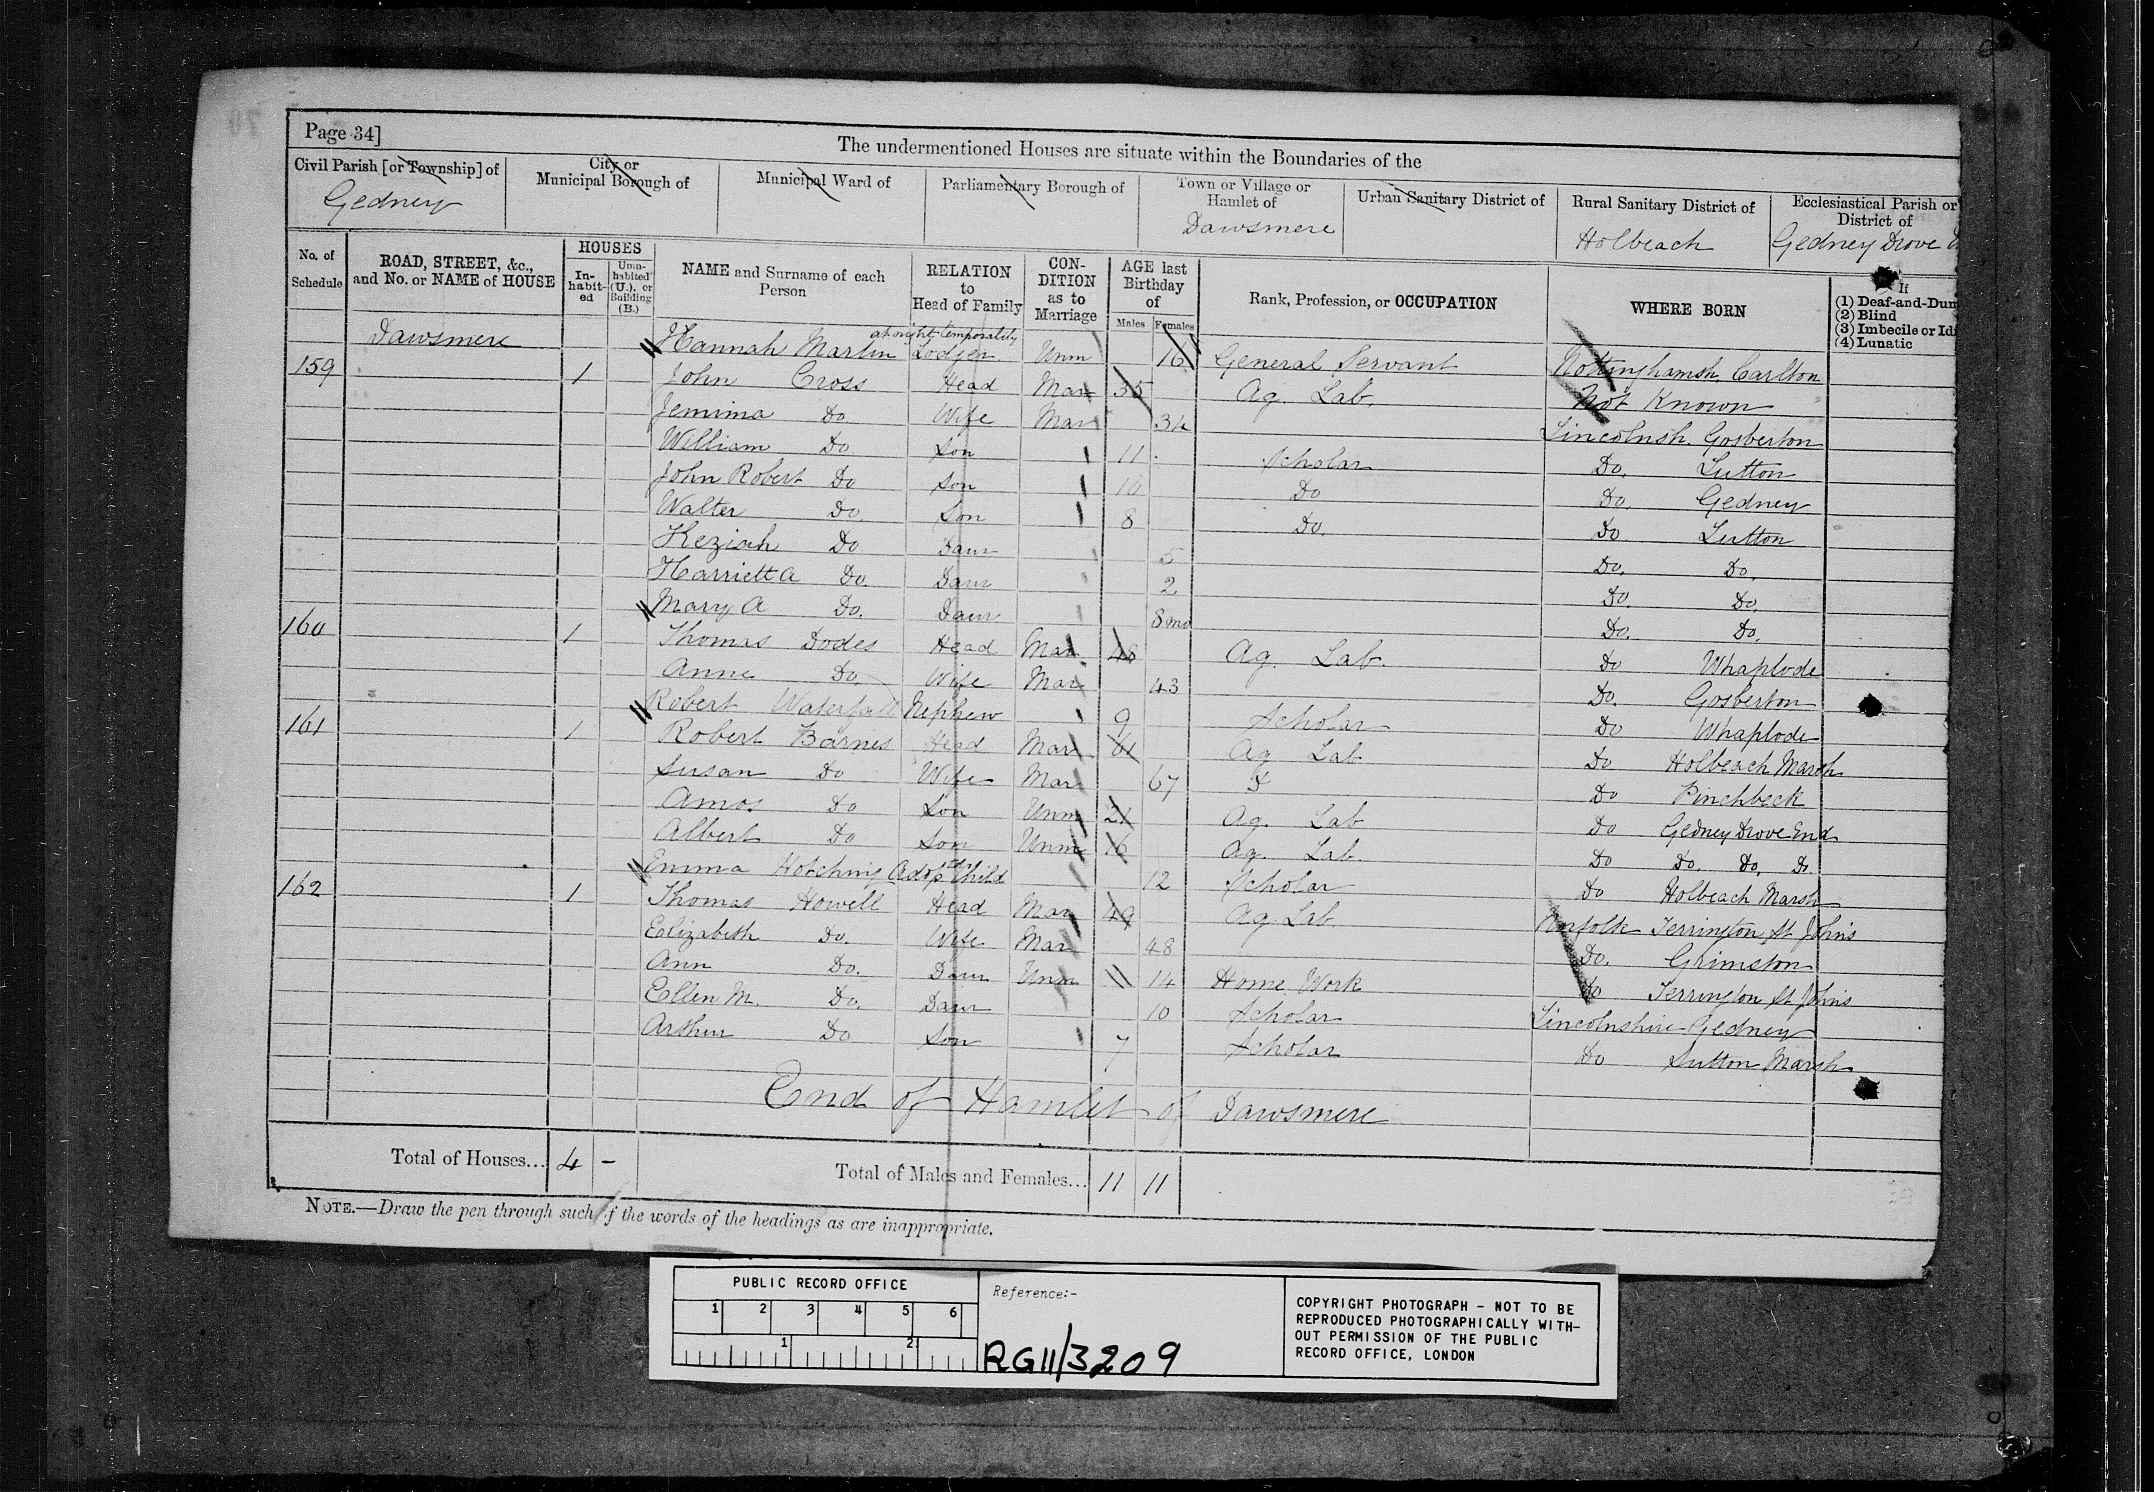 Page 34]
The undermentioned Houses are situate within the Boundaries of the
Civil Parish [or Township] of
Gedney
City or Municipal Borough of
Municipal Ward of
Parliamentary Borough of
Town or Village or Hamlet of
Dawsmere
Urban Sanitary District of
Rural Sanitary District of
Holbeach
Ecclesiastical Parish or District of
Gedney Drove
No. of Schedule
ROAD, STREET, &c., and No. or NAME of HOUSE
HOUSES
In-habit-ed
Unin-habited (U.), or Building (B.)
NAME and Surname of each Person
RELATION to Head of Family
CON-DITION as to Marriage
AGE last Birthday of
Males Females
Rank, Profession, or OCCUPATION
WHERE BORN
If
(1) Deaf-and-Dum
(2) Blind
(3) Imbecile or Idi
(4) Lunatic
at night temporality
Dawsmere Hannah Martin Lodger Unm 16 General Servant Nottinghamsh. Carlton
159 1 John Cross Head Mar 35 Ag. Lab. Not Known
Jemima Do Wife Mar 34 Lincolnsh. Gosberton
William Do Son 11 Scholar Do. Lutton
John Robert Do Son 10 Do Do. Gedney
Walter Do. Son 8 Do. Do Lutton
Keziah Do Daur 5 Do. Do.
Harriett A Do. Daur 2 Do. Do.
Mary A Do. Daur 8 mo Do. Do.
160 1 Thomas Dodes Head Mar 48 Ag. Lab. Do Whaplode
Anne Do. Wife Mar 43 Do. Gosberton
Robert Waterfall Nephew 9 Scholar Do Whaplode
161 1 Robert Barnes Head Mar 61 Ag Lab Do Holbeach Marsh
Susan Do Wife Mar 67 Do Pinchbeck
Amos Do Son Unm 21 Ag. Lab Do Gedney Drove End
Albert Do Son Unm 16 Ag. Lab. Do Do. Do. Do.
Emma Adopted Child 12 Scholar Do Holbeach Marsh
162 1 Thomas Howell Head Mar 49 Ag. Lab. Norfolk Terrington St John's
Elizabeth Do. Wife Mar 48 Do. Grimston
Ann Do. Daur Unm 14 Home Work Do Terrington St John's
Ellen M. Do. Daur 10 Scholar Lincolnshire Gedney
Arthur Do Son 7 Scholar Do Sutton Marsh
End of Hamlet of Dawsmere
Total of Houses... 4 -
Total of Males and Females... 11 11
NOTE.—Draw the pen through such of the words of the headings as are inappropriate.
PUBLIC RECORD OFFICE
1 2 3 4 5 6
1 2
Reference:-
RG11/3209
COPYRIGHT PHOTOGRAPH - NOT TO BE
REPRODUCED PHOTOGRAPHICALLY WITH-
OUT PERMISSION OF THE PUBLIC
RECORD OFFICE, LONDON